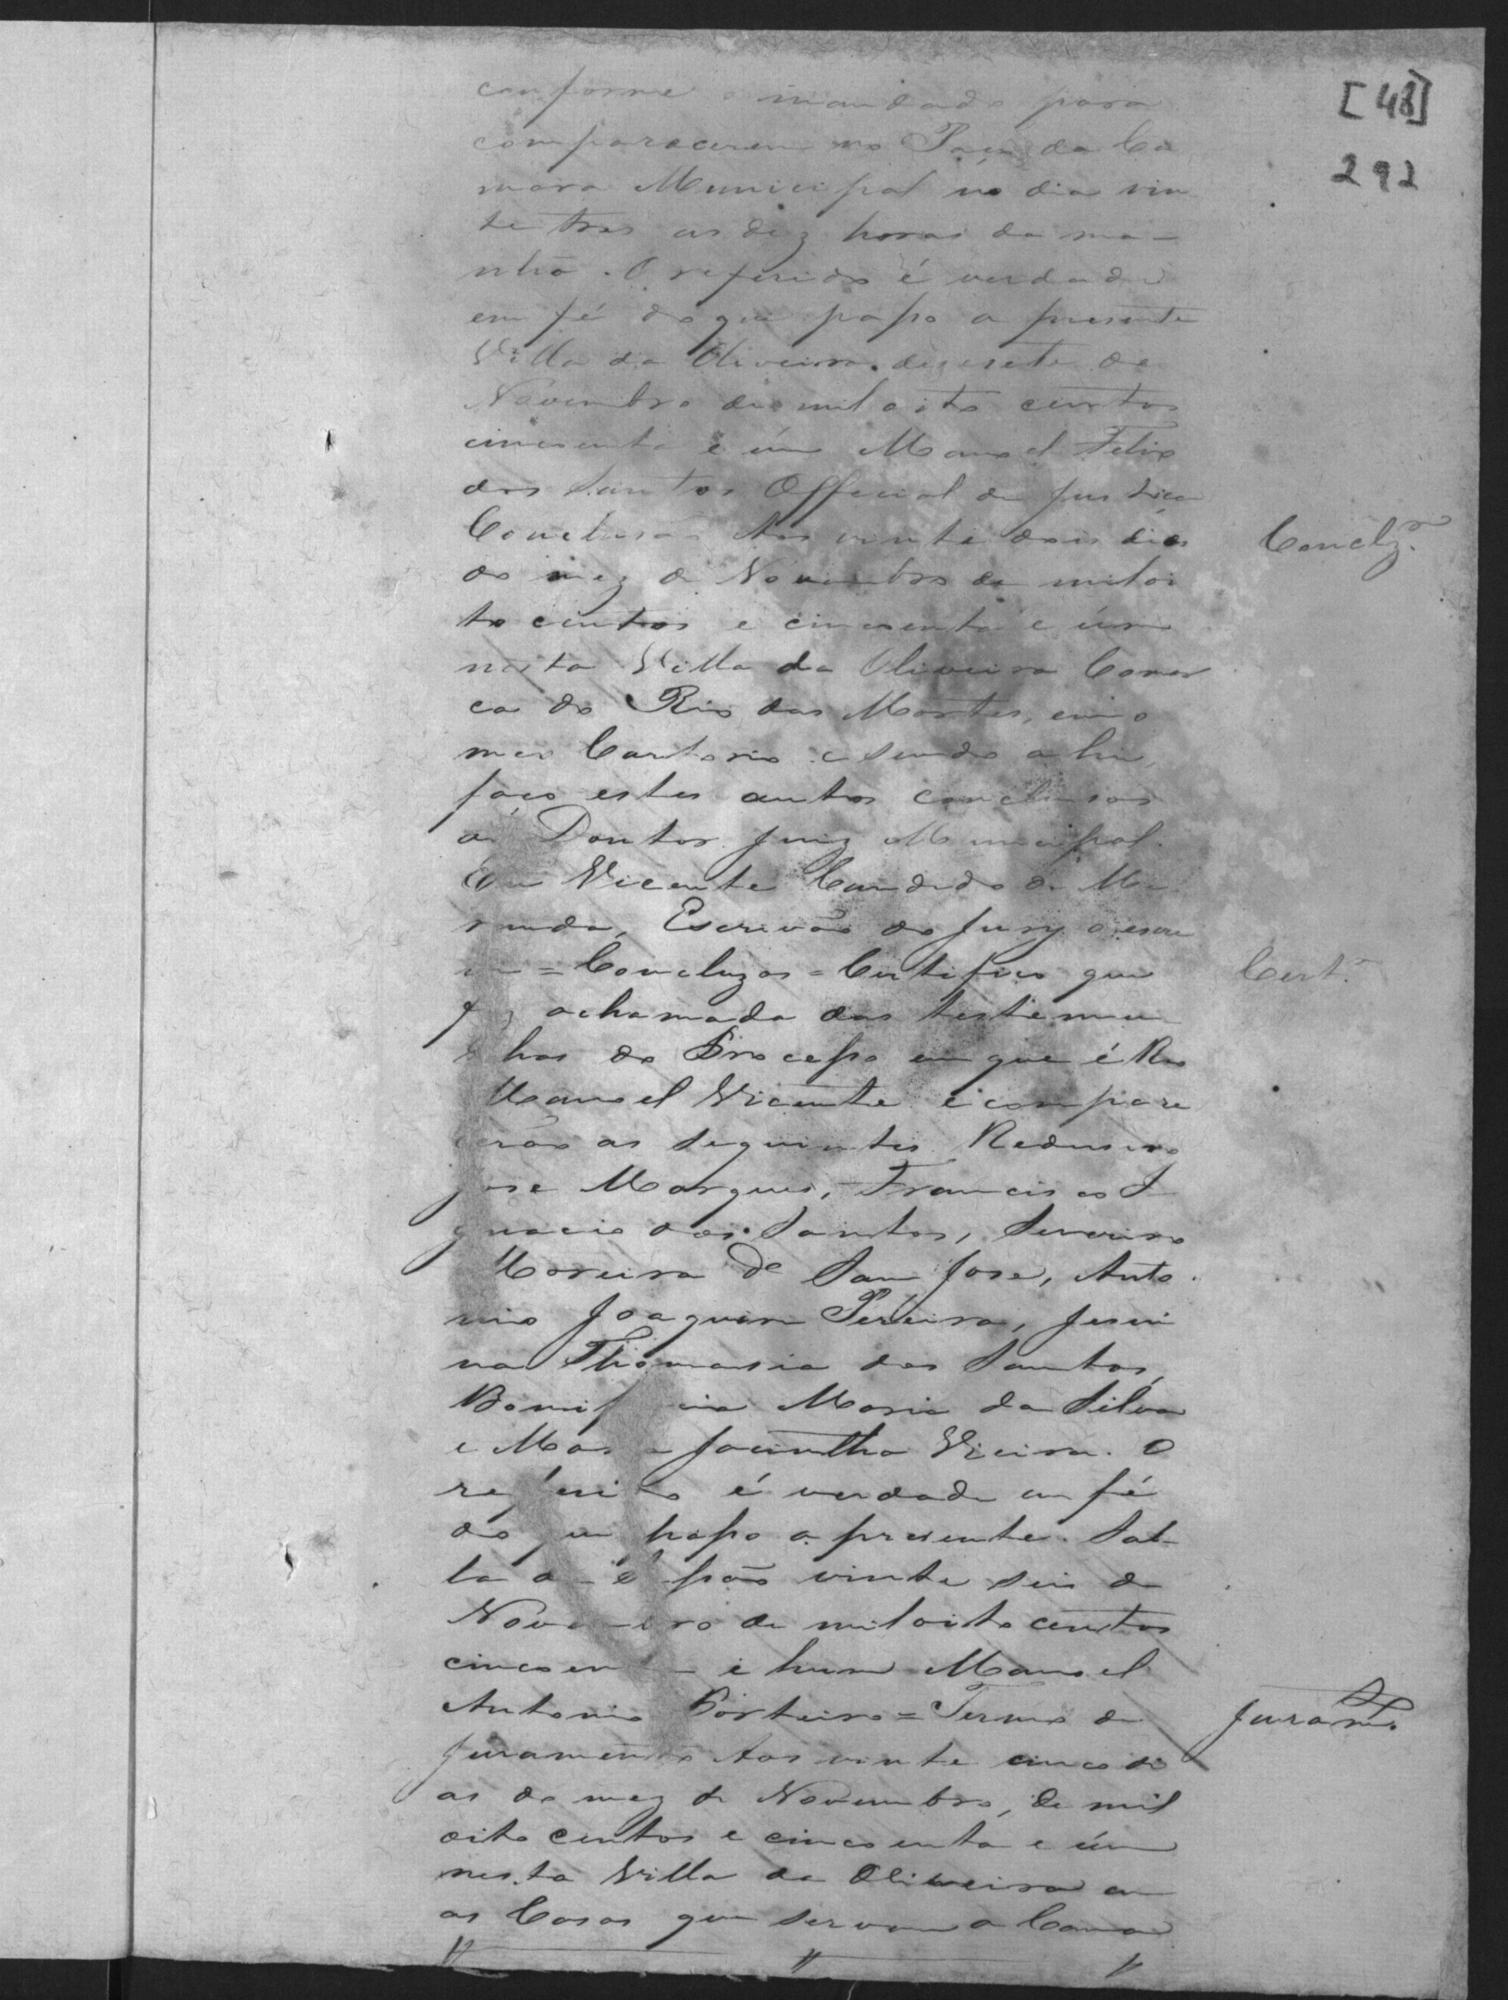 [48]
292
conforme o mandado para
comparacerem no Paço da Ca
mara Municipal no dia vin
te tres as dez horas da ma-
nhã. O referido é verdade
em fé do que passo a presente
Villa da Oliveira dezesete de
Novembro de mil oito centos
cincoenta e úm Manoel Felix
dos Santos Official de Justiça
Conclusão Aos vinte dois dias
Conclz.ão
do mez de Novembro de miloi
to centos e cincoenta e úm
nesta Villa da Oliveira Comar
ca do Rio das Mortes, em o
meu Cartorio e sendo ahi,
faço estes autos conclusos
ao Doutor Juiz Municipal.
Eu Vicente Candido de Mi
randa, Escrivão do Jury o escre
vi = Concluzos = Certifico que
Cert.
fiz achamada das testemu
nhas do Processo em que é Reo
Manoel Vicente e compare
cerão as seguintes Redusino
Jose Marques, Francisco I
gnacio dos Santos, Severino
Moreira de Sam Jose, Anto
nio Joaquim Pereira, Jesui
na Thomasia dos Santos,
Bonifacia Maria da Silva
e Maria Jacintha Vieira. O
referido é verdade em fé
do que passo a presente. Sal-
la da Sessão vinte seis de
Novembro de miloito centos
cincoenta e hum Manoel
Antonio Porteiro = Termo de
Juram.to
Juramento Aos vinte cinco di
as do mez de Novembro, de mil
oito centos e cincoenta e úm
nesta Villa da Oliveira em
as Casas que servem a Cama